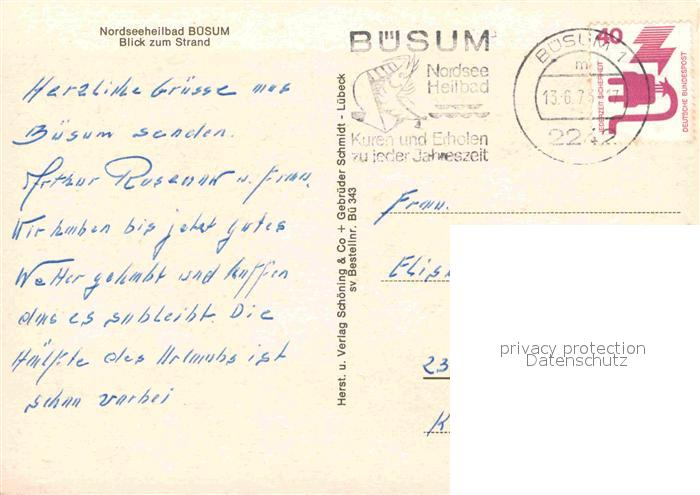 Nordseeheilbad BÜSUM
Blick zum Strand
Herzliche Grüsse aus
Büsum senden.
Arthur Rusenau u. Frau.
Wir haben bis jetzt gutes
Wetter gehabt und hoffen
das es so bleibt. Die
Hälfte des Urlaubs ist
schon vorbei
Herst. u. Verlag Schöning & Co + Gebrüder Schmidt - Lübeck
sv Bestellnr. Bü 343
BÜSUM
Nordsee
Heilbad
Kuren und Erholen
zu jeder Jahreszeit
BÜSUM 1
m
13.6.7
2242
40
JEDERZEIT SICHERHEIT
DEUTSCHE BUNDESPOST
Frau
Elis
23
K
privacy protection
Datenschutz